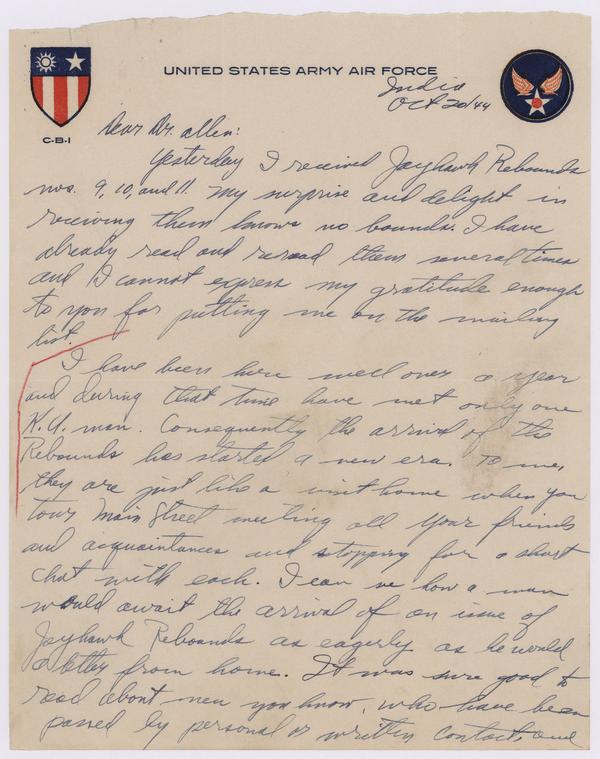 UNITED STATES ARMY AIR FORCE
C·B·I
India
Oct 20/44
Dear Dr. Allen:
Yesterday I received Jayhawk Rebounds
nos. 9, 10, and 11. My surprise and delight in
receiving them knows no bounds. I have
already read and reread them several times
and I cannot express my gratitude enough
to you for putting me on the mailing
list.
I have been here well over a year
and during that time have met only one
K.U. man. Consequently the arrival of the
Rebounds has started a new era. To me,
they are just like a visit home when you
tour Main Street meeting all your friends
and acquaintances and stopping for a short
chat with each. I can see how a man
would await the arrival of an issue of
Jayhawk Rebounds as eagerly as he would
a letter from home. It was sure good to
read about men you know, who have been
passed by personal or written contact, and